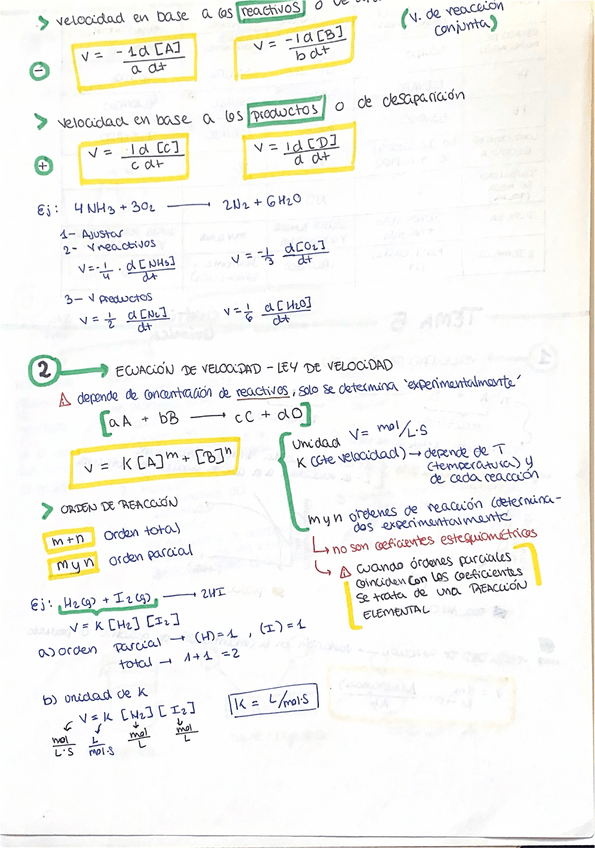 > velocidad en base a los reactivos o de
(v. de reacción
conjunta)
⊖ v = -1d [A] / a dt
v = -1d [B] / b dt
> velocidad en base a los productos o de desaparición
⊕ v = 1d [C] / c dt
v = 1d [D] / d dt
Ej: 4NH3 + 3O2 ⟶ 2N2 + 6H2O
1- Ajustar
2- v reactivos
v = -1/4 · d[NH3]/dt
v = -1/3 d[O2]/dt
3- v Productos
v = 1/2 d[N2]/dt
v = 1/6 d[H2O]/dt
2 → ECUACIÓN DE VELOCIDAD - LEY DE VELOCIDAD
⚠ depende de concentración de reactivos, solo se determina 'experimentalmente'
[aA + bB ⟶ cC + dD]
v = K[A]^m + [B]^n
Unidad V = mol/L·S
K (cte velocidad) → depende de T
(temperatura) y
de cada reacción
m y n órdenes de reacción (determina-
das experimentalmente
↳ no son coeficientes estequiométricos
↳ ⚠ cuando órdenes parciales
coinciden con los coeficientes
se trata de una REACCIÓN
ELEMENTAL
> ORDEN DE REACCIÓN
m+n orden total
m y n orden parcial
Ej: H2(g) + I2(g) ⟶ 2HI
V = K [H2] [I2]
a) orden parcial → (H)=1 , (I)=1
total → 1+1 = 2
b) unidad de K
V = K [H2] [I2]
mol/L·S L/mol·S mol/L mol/L
K = L/mol·S
TEMA 5